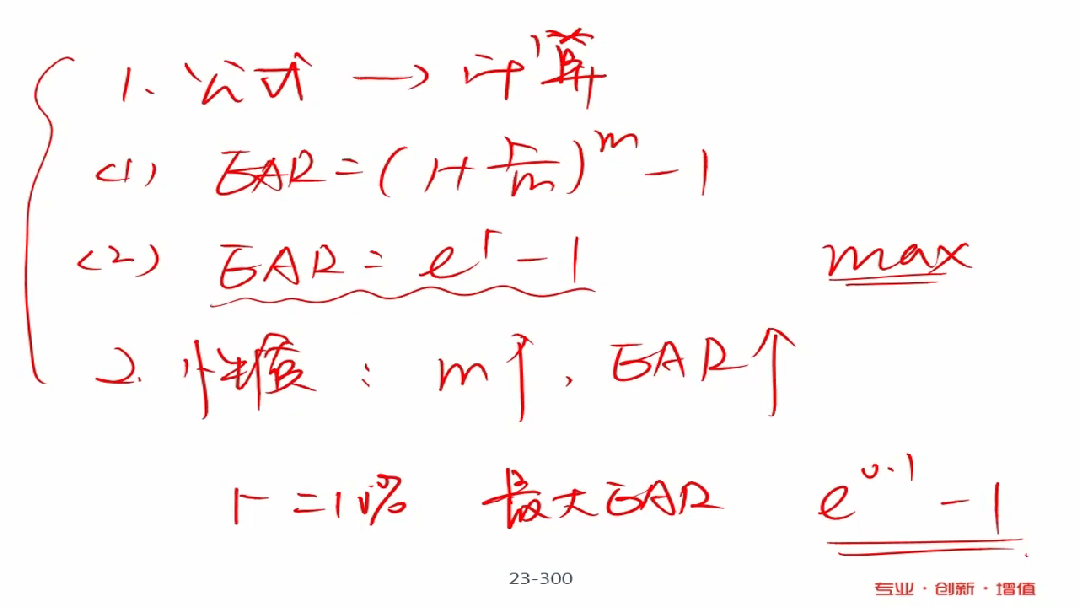 1. 公式 → 计算
(1) EAR = (1 + r/m)^m - 1
(2) EAR = e^r - 1 max
2. 性质 : m↑, EAR↑
r = 10% 最大EAR e^0.1 - 1
23-300
专业·创新·增值